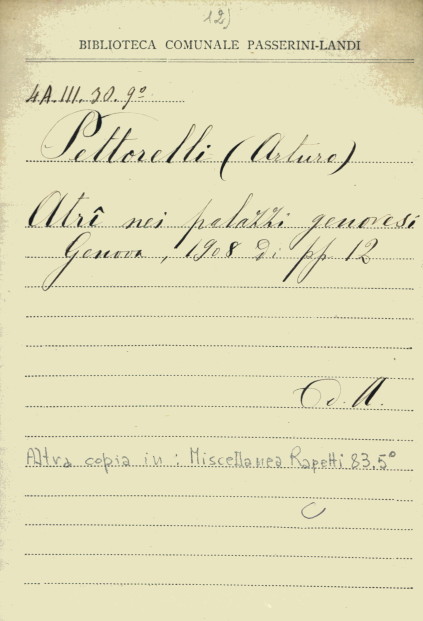 12)
BIBLIOTECA COMUNALE PASSERINI-LANDI
4A.III.30.9º
Pettorelli (Arturo)
Atrî nei palazzi genovesi
Genova, 1908 di pp. 12
Altra copia in: Miscellanea Rapetti 83.5º